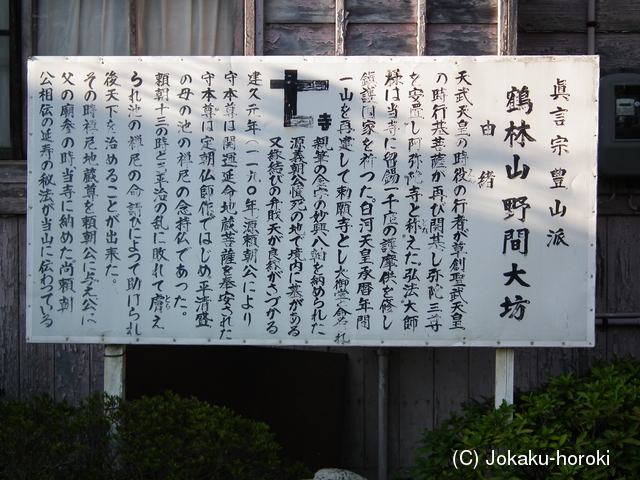 眞言宗豊山派
鶴林山野間大坊
由緒
天武天皇の時役の行者が草創聖武天皇
の時行基菩薩が再び開基し弥陀三尊
を安置し阿弥陀寺と称えた。弘法大師
様は当寺に留錫一千座の護摩供を修し
鎮護国家を祈った。白河天皇承暦年間
一山を再建して勅願寺とし大御堂寺と命名され
寺
親筆の金字の妙典八軸を納められた
源義朝公惨死の地で境内に墓がある
又縁結びの弁財天が良縁をさづかる
建久元年(一一九〇年)源頼朝公により
守本尊は開運延命地蔵菩薩を奉安された
守本尊は定朝仏師作ではじめ平清盛
の母の池の禅尼の念持仏であった。
頼朝十三の時平治の乱に敗れて虜え
られ池の禅尼の命請いによって助けられ
後天下を治めることが出来た。
その時禅尼地蔵尊を頼朝公に与え公は
父の廟参の時当寺に納めた尚頼朝
公相伝の延寿の秘法が当山に伝わっている
(C) Jokaku-horoki